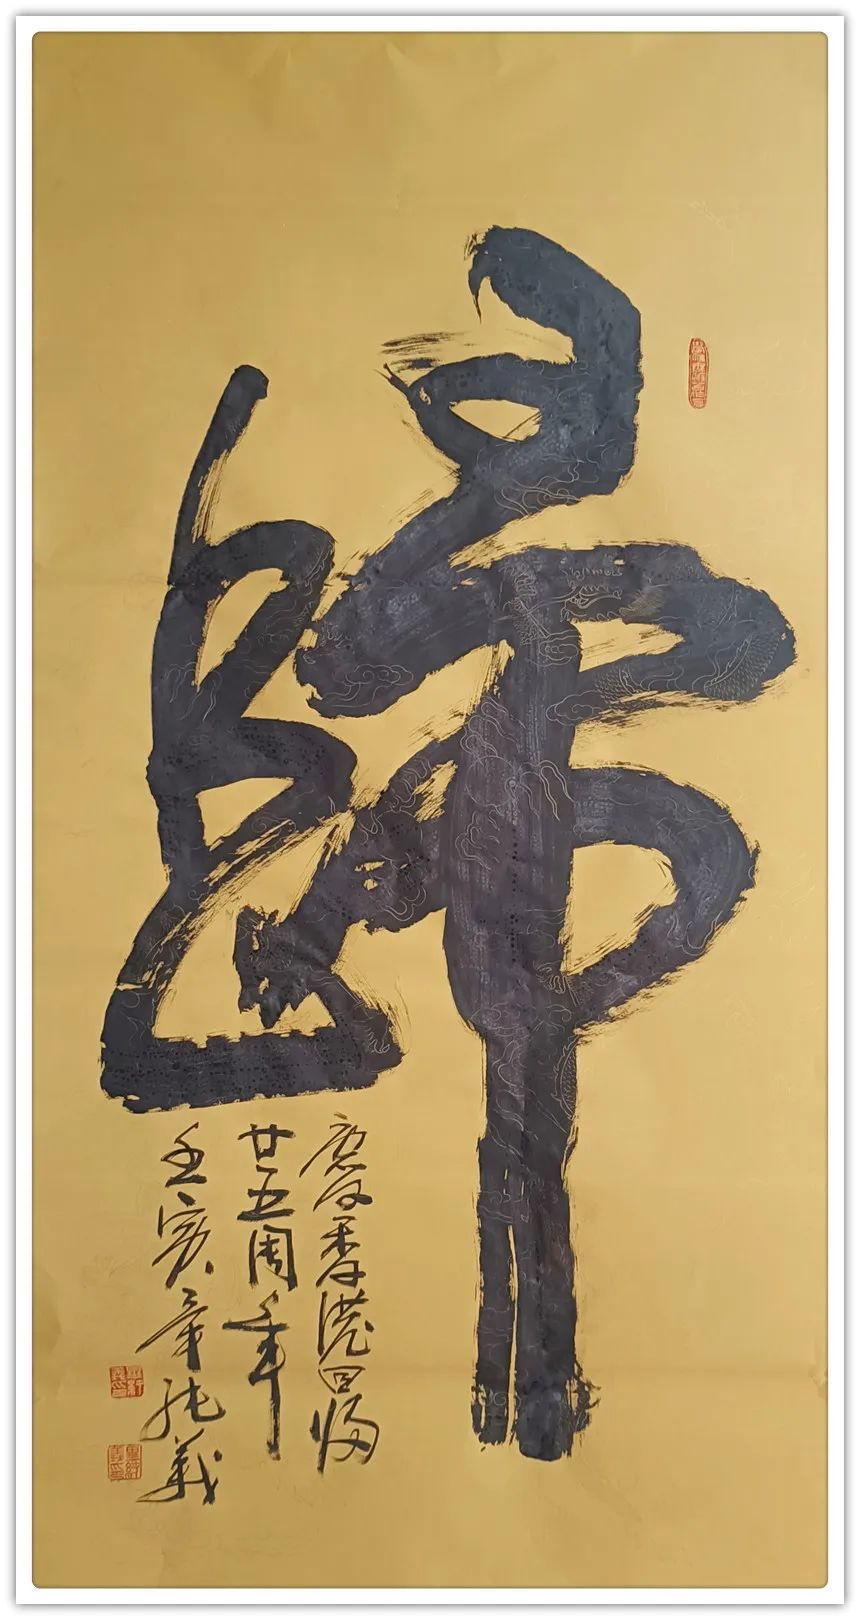 歸
慶香港回归
廿五周年
壬寅章義